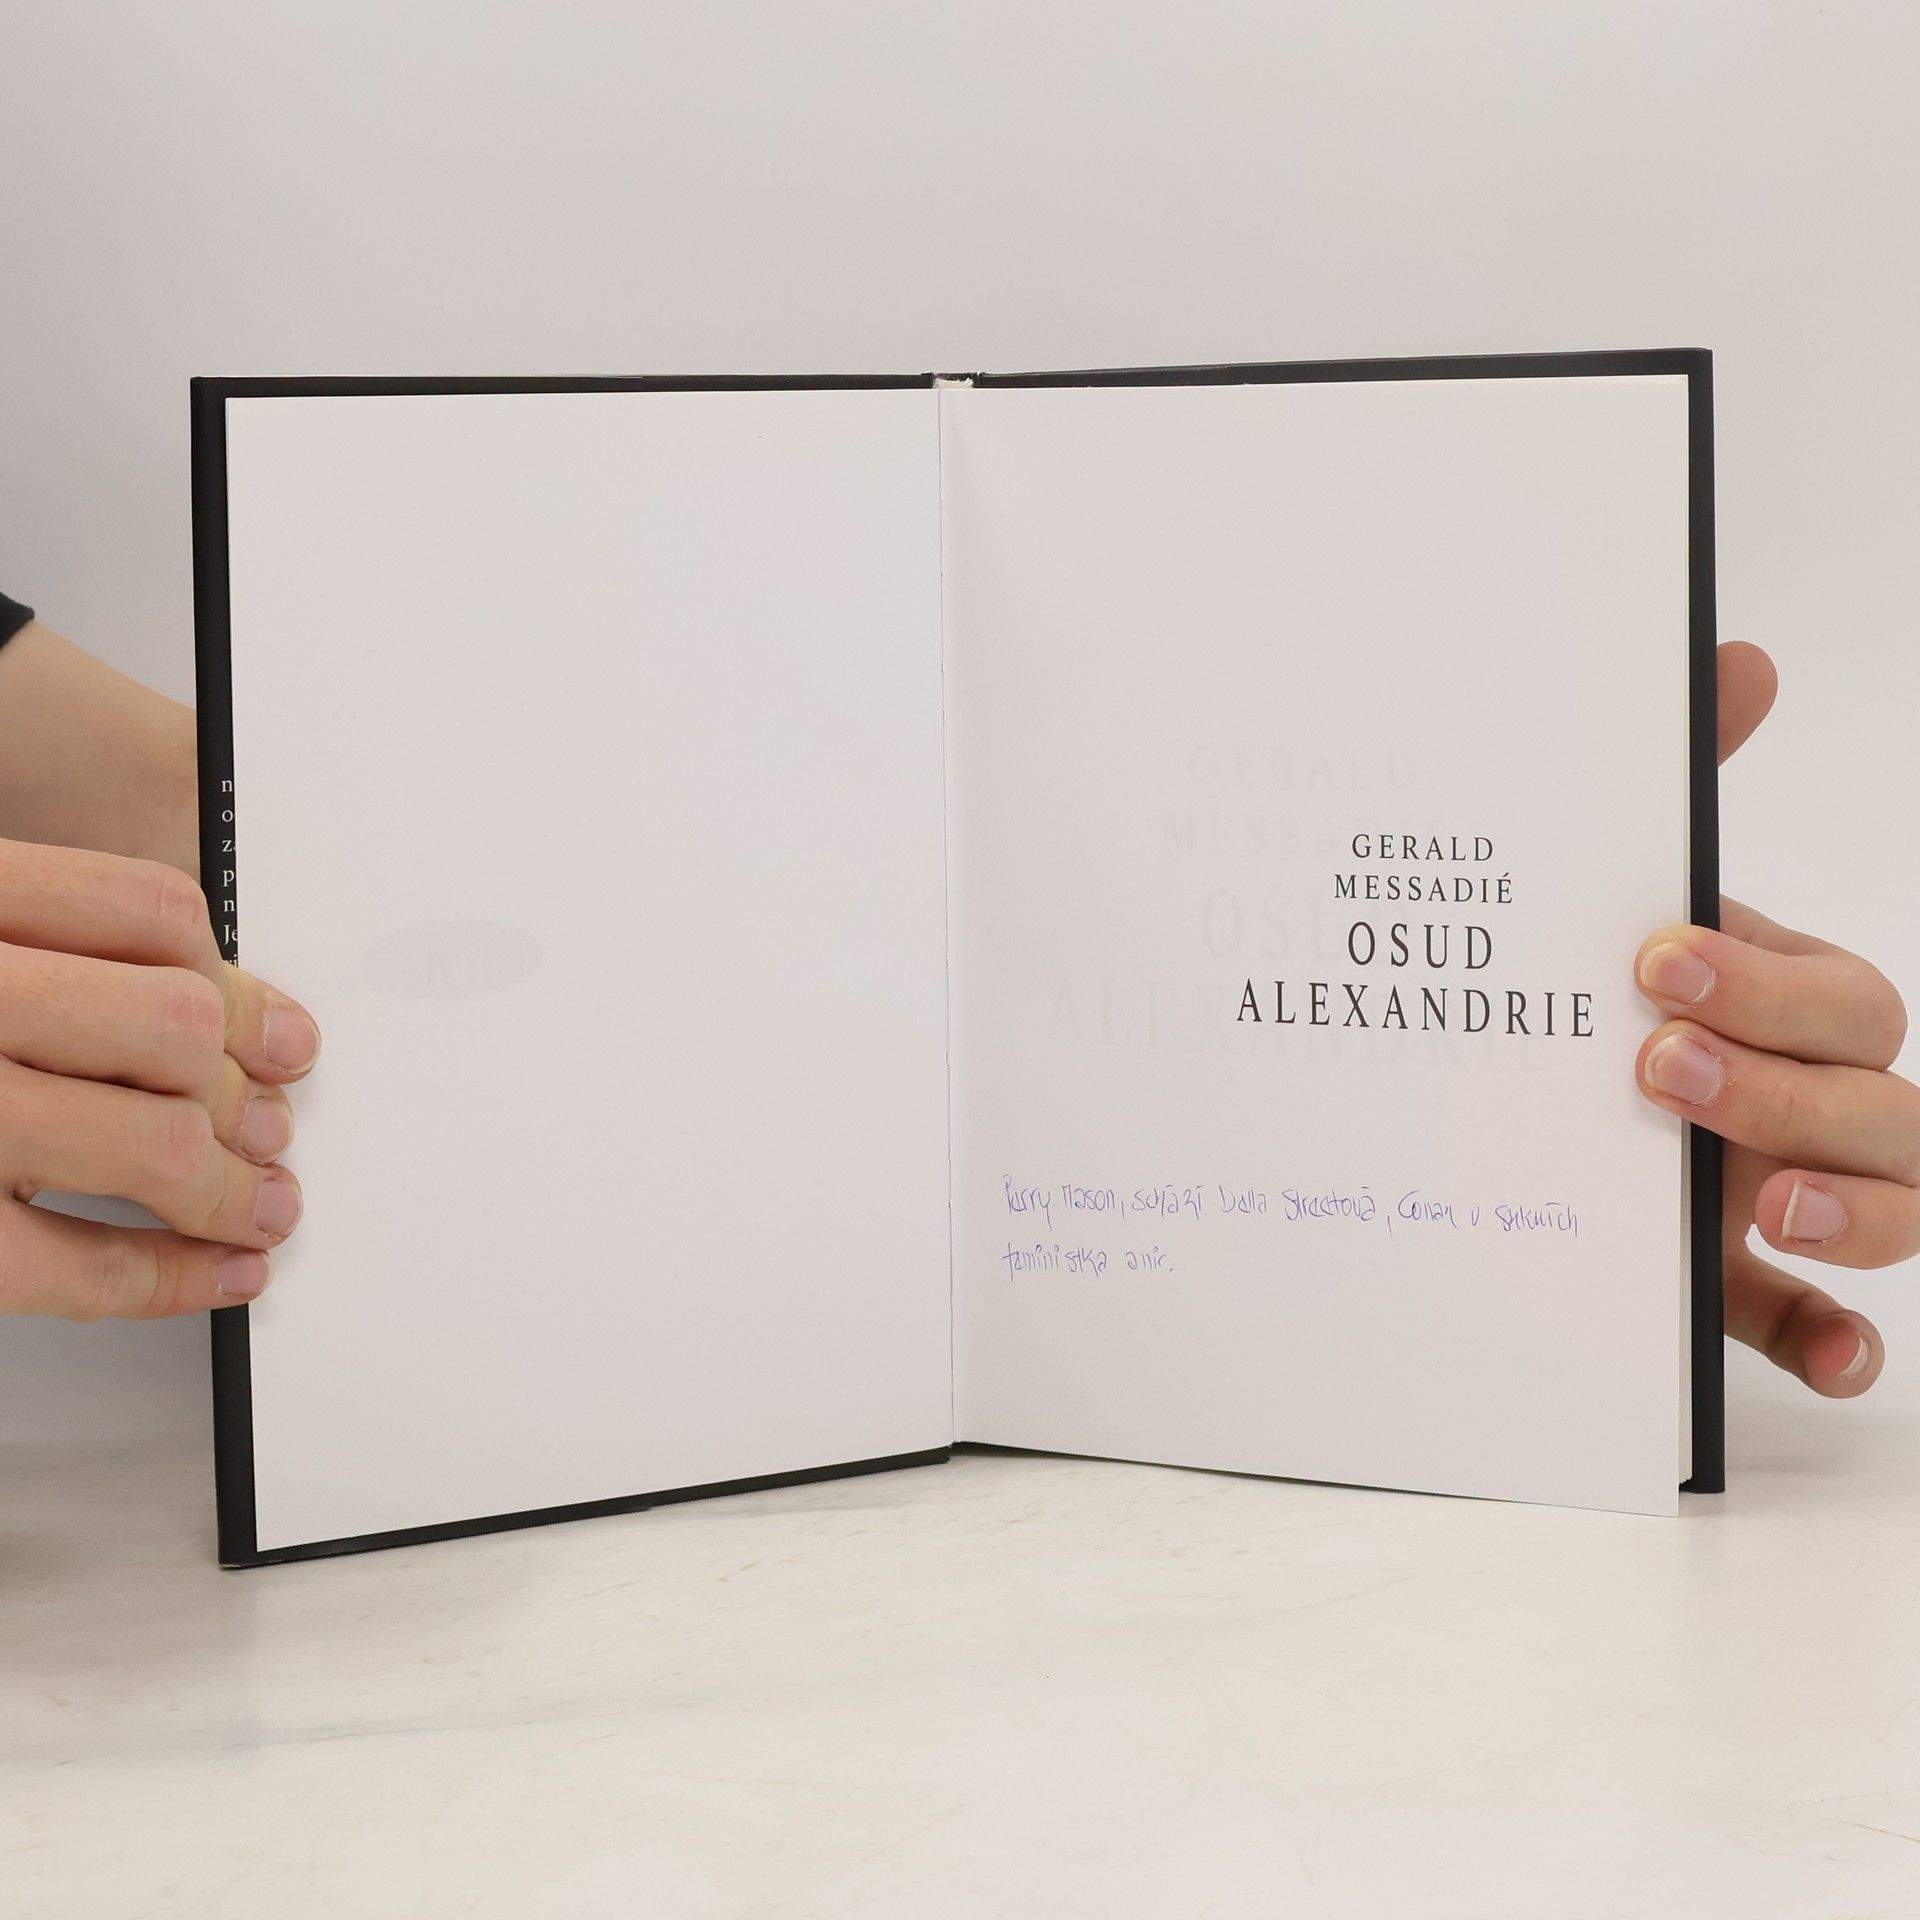 n
o
z
p
n
Je
GERALD
MESSADIÉ
OSUD
ALEXANDRIE
Perry Mason, schází Della Streetová, Conan v sukních
feministka a nic.